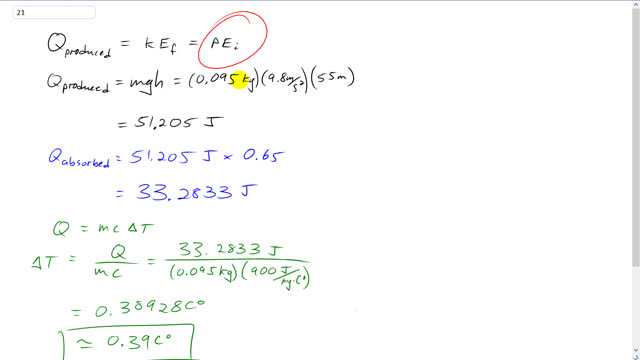 21
Q produced = KE f = PE i
Q produced = mgh = (0.095 kg)(9.8 m/s²)(55m)
= 51.205 J
Q absorbed = 51.205 J × 0.65
= 33.2833 J
Q = mc ΔT
ΔT = Q/mc = 33.2833 J/(0.095kg)(900 J/kg·C°)
= 0.38928C°
≃ 0.39C°